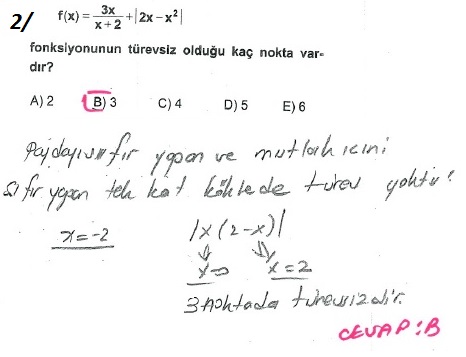 2/ f(x) = 3x/x+2 + |2x - x²|
fonksiyonunun türevsiz olduğu kaç nokta var-
dır?
A) 2 B) 3 C) 4 D) 5 E) 6
Paydayı sıfır yapan ve mutlak içini
sıfır yapan tek kat köklede türev yoktur!
x=-2 |x(2-x)|
x=0 x=2
3 noktada türevsizdir.
CEVAP:B